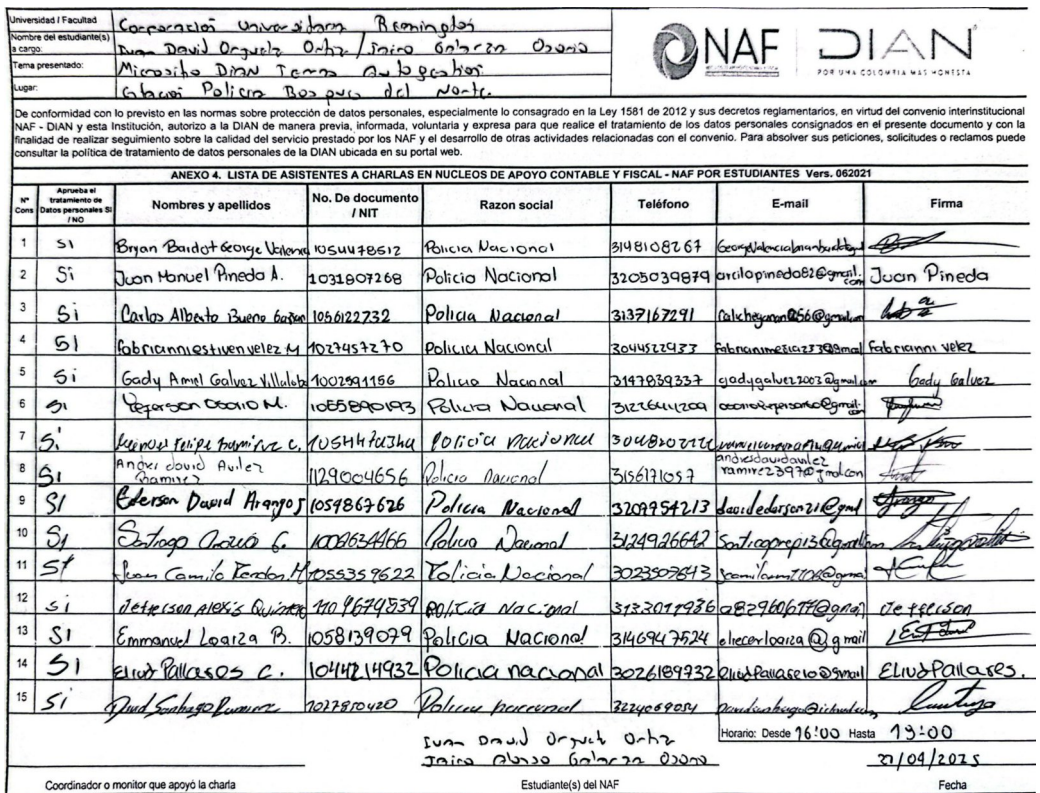 Universidad / Facultad Corporación Universitaria Remington
Nombre del estudiante(s) a cargo: Ivan David Orguela Ortiz / Jairo Galarza Osorio
Tema presentado: Micrositio DIAN Temas Autogestion
Lugar: Estación Policia Bosques del Norte.
NAF DIAN
POR UNA COLOMBIA MÁS HONESTA
De conformidad con lo previsto en las normas sobre protección de datos personales, especialmente lo consagrado en la Ley 1581 de 2012 y sus decretos reglamentarios, en virtud del convenio interinstitucional
NAF - DIAN y esta Institución, autorizo a la DIAN de manera previa, informada, voluntaria y expresa para que realice el tratamiento de los datos personales consignados en el presente documento y con la
finalidad de realizar seguimiento sobre la calidad del servicio prestado por los NAF y el desarrollo de otras actividades relacionadas con el convenio. Para absolver sus peticiones, solicitudes o reclamos puede
consultar la política de tratamiento de datos personales de la DIAN ubicada en su portal web.
ANEXO 4. LISTA DE ASISTENTES A CHARLAS EN NUCLEOS DE APOYO CONTABLE Y FISCAL - NAF POR ESTUDIANTES Vers. 062021
N° Cons Aprueba el tratamiento de Datos personales SI / NO Nombres y apellidos No. De documento / NIT Razon social Teléfono E-mail Firma
1 SI Bryan Bardot George Valencia 1054478512 Policia Nacional 3148108267
2 Si Juan Manuel Pineda A. 1031807268 Policia Nacional 3205039879 arcilopineda82@gmail.com Juan Pineda
3 Si Carlos Alberto Bueno 1056122732 Policia Nacional 3137167291
4 SI fabrianniestiven velez M 1027457270 Policia Nacional 3044522933 Fabrianni velez
5 Si Gady Amel Galvez Villalobo 1002591156 Policia Nacional 3147839337 gadygalvez2003@gmail.com Gady Galvez
6 SI Yeferson Osorio M. 1055890193 Policia Nacional 3122641209
7 Si Felipe Ramirez C. Policia nacional
8 SI Andres david Avilez Ramirez 1129004656 Policia Nacional 3156171057 andresdavidavilez ramirez2397@gmail.com
9 SI Ederson David Arango J 1059867626 Policia Nacional 3209954213 davidederson21@gmail Arango
10 Si Santiago 1002634466 Policia Nacional 3124926642
11 SI Juan Camilo Rendon M 1055359622 Policia Nacional 3023507643
12 si Jefferson Alexis Quintero Policia Nacional 3133011936 a82960617@gmail Jefferson
13 SI Emmanuel Loaiza B. 1058139079 Policia Nacional 3146947524 eliecerloaiza@gmail
14 SI Eliud Pallares C. 1044214932 Policia nacional 3026189732 eliudpallares10@gmail Eliud Pallares.
15 Si David Santiago Ramirez 1027850420 Policia nacional 3224069054
Horario: Desde 16:00 Hasta 19:00
Ivan David Orguela Ortiz
Jairo Alonso Galarza Osorio
22/04/2025
Coordinador o monitor que apoyó la charla Estudiante(s) del NAF Fecha